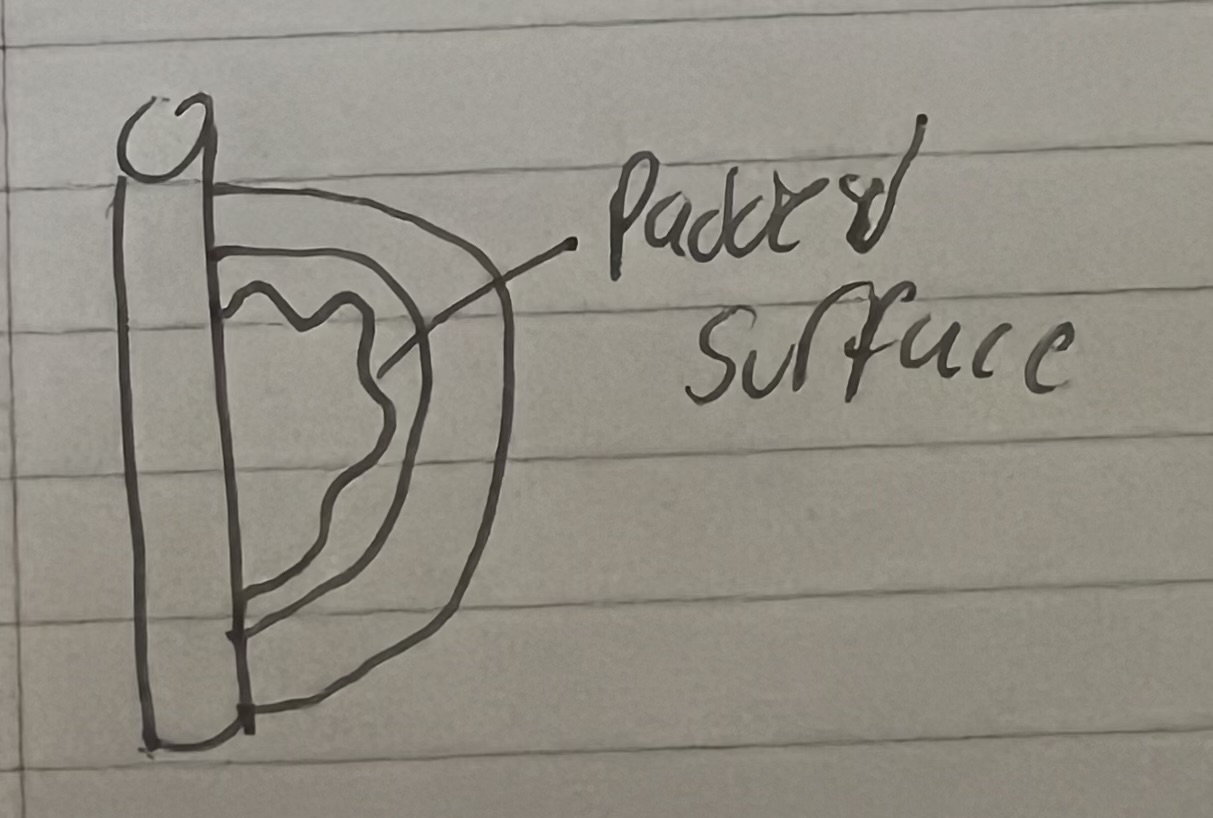 Padded
Surface